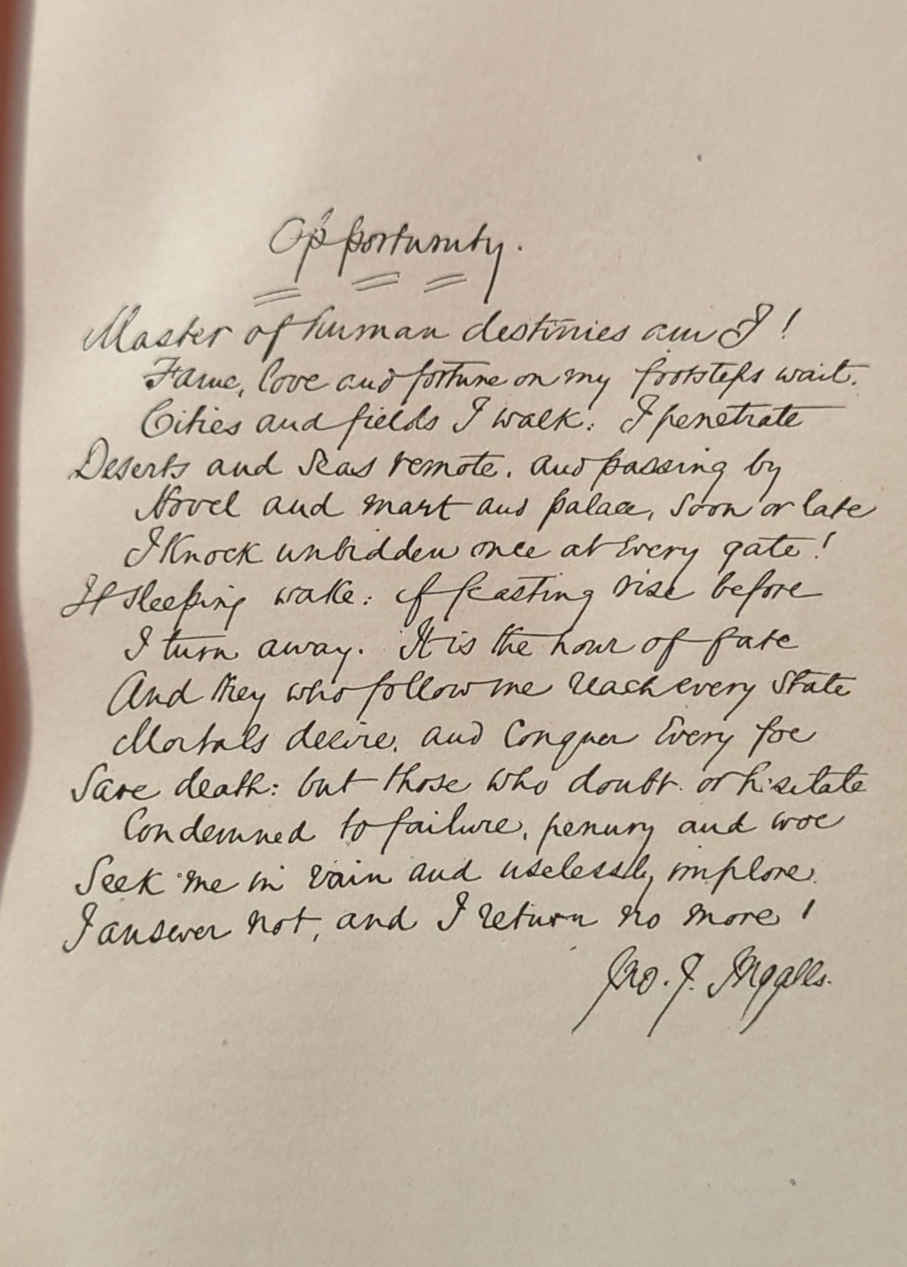 Opportunity.
Master of human destinies am I!
Fame, love and fortune on my footsteps wait.
Cities and fields I walk: I penetrate
Deserts and seas remote, and passing by
Hovel and mart and palace, soon or late
I knock unbidden once at every gate!
If sleeping wake: if feasting rise before
I turn away. It is the hour of fate
And they who follow me reach every state
Mortals desire, and conquer every foe
Save death: but those who doubt or hesitate
Condemned to failure, penury and woe
Seek me in vain and uselessly implore.
I answer not, and I return no more!
Jno. J. Ingalls.